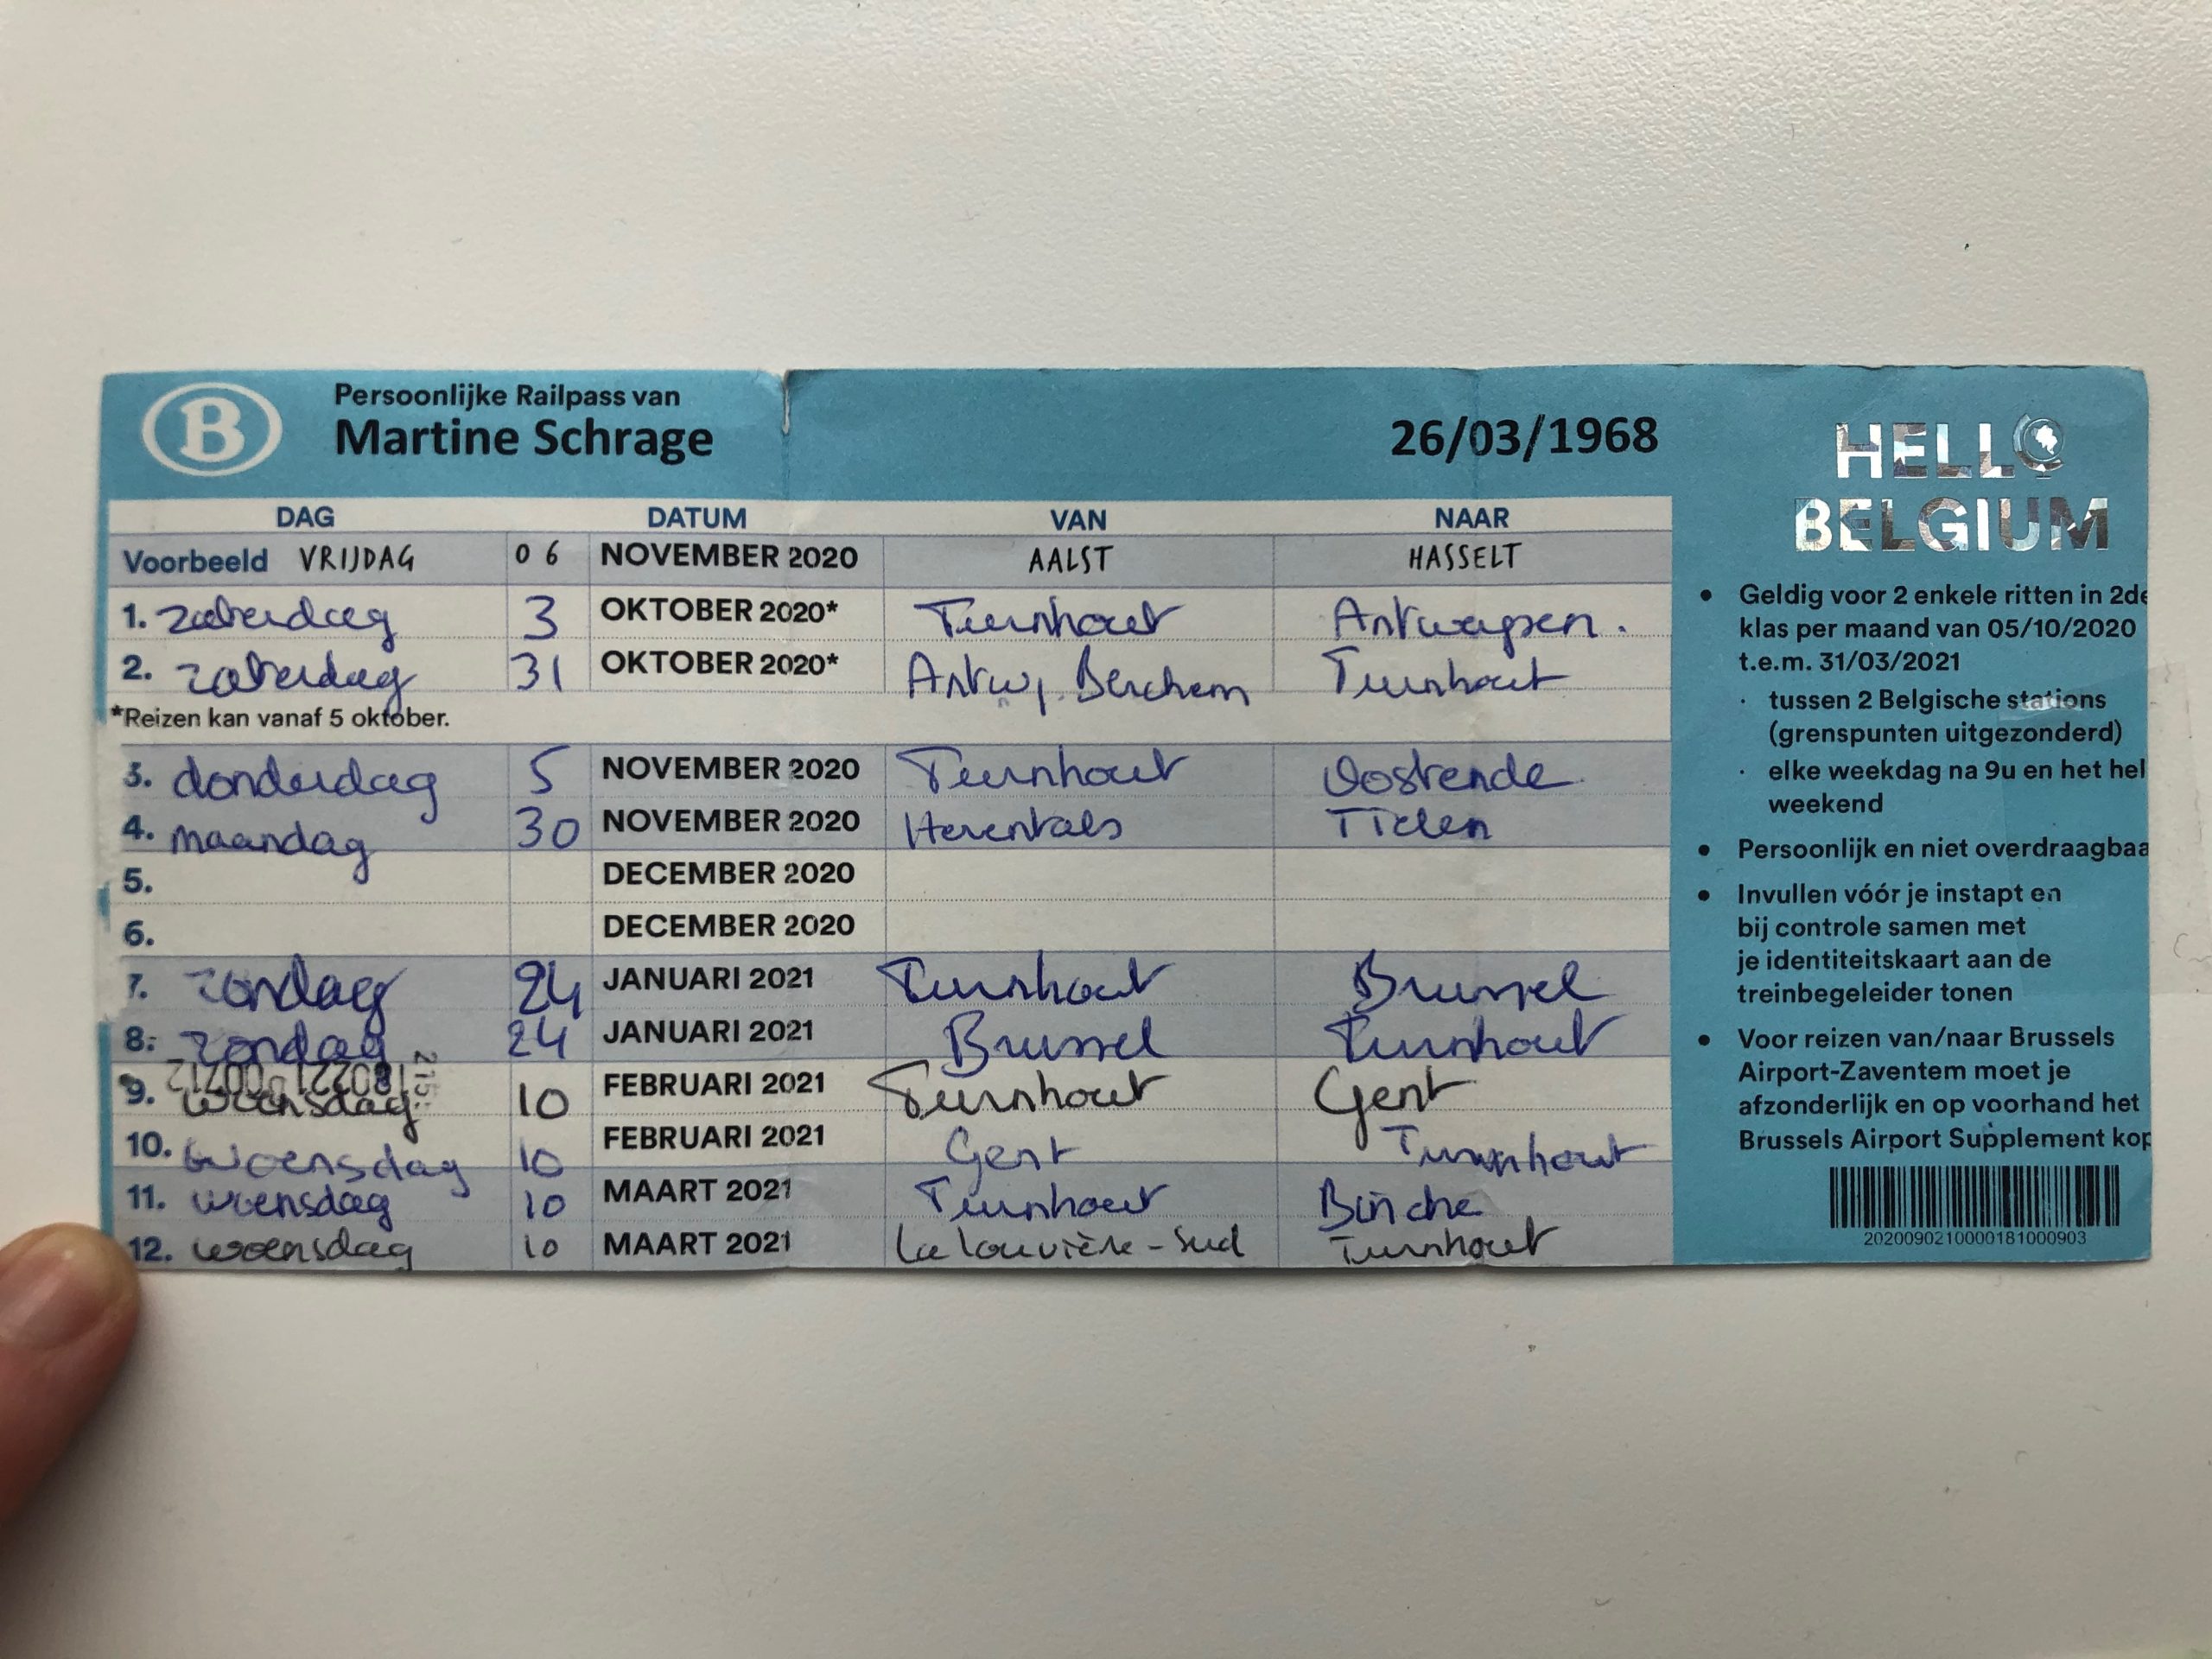 B
Persoonlijke Railpass van
Martine Schrage
26/03/1968
HELLO
BELGIUM
DAG DATUM VAN NAAR
Voorbeeld VRIJDAG 06 NOVEMBER 2020 AALST HASSELT
1. zaterdag 3 OKTOBER 2020* Turnhout Antwerpen.
2. zaterdag 31 OKTOBER 2020* Antw. Berchem Turnhout
*Reizen kan vanaf 5 oktober.
3. donderdag 5 NOVEMBER 2020 Turnhout Oostende
4. maandag 30 NOVEMBER 2020 Herentals Tielen
5. DECEMBER 2020
6. DECEMBER 2020
7. zondag 24 JANUARI 2021 Turnhout Brussel
8. zondag 24 JANUARI 2021 Brussel Turnhout
9. woensdag 10 FEBRUARI 2021 Turnhout Gent
10. woensdag 10 FEBRUARI 2021 Gent Turnhout
11. woensdag 10 MAART 2021 Turnhout Binche
12. woensdag 10 MAART 2021 La Louvière-Sud Turnhout
• Geldig voor 2 enkele ritten in 2de
klas per maand van 05/10/2020
t.e.m. 31/03/2021
· tussen 2 Belgische stations
(grenspunten uitgezonderd)
· elke weekdag na 9u en het hel
weekend
• Persoonlijk en niet overdraagbaa
• Invullen vóór je instapt en
bij controle samen met
je identiteitskaart aan de
treinbegeleider tonen
• Voor reizen van/naar Brussels
Airport-Zaventem moet je
afzonderlijk en op voorhand het
Brussels Airport Supplement kop
2020090210000181000903